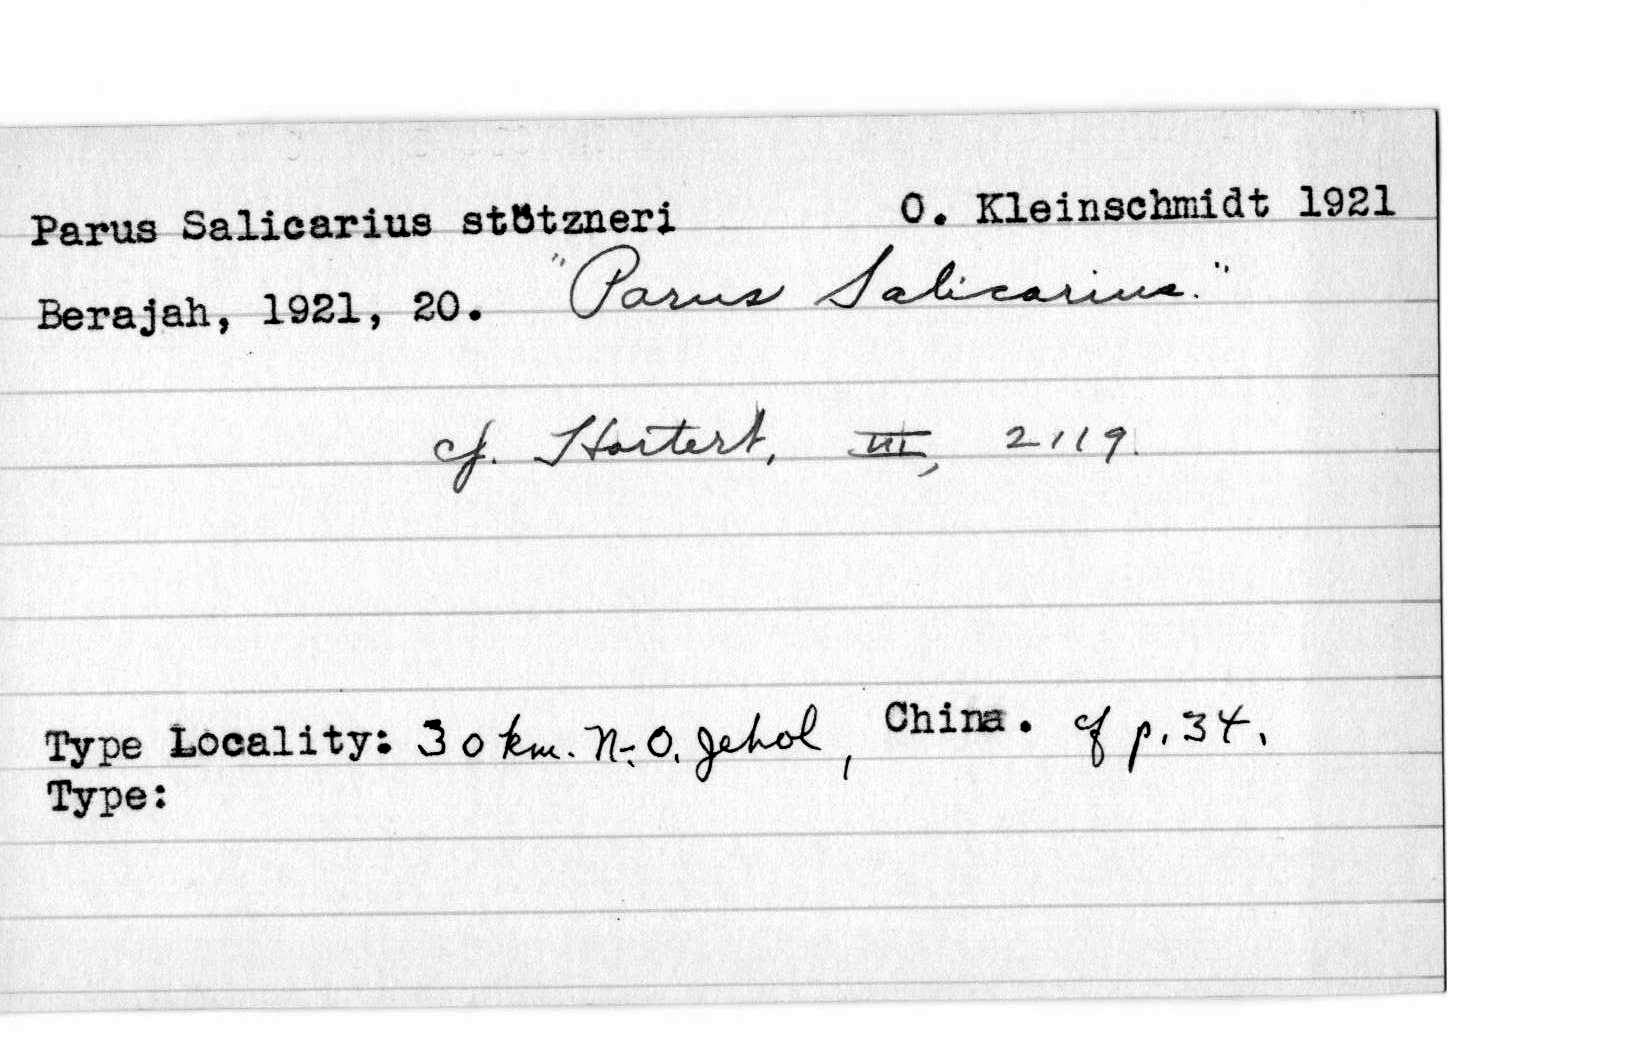 Parus Salicarius stötzneri O. Kleinschmidt 1921
Berajah, 1921, 20. "Parus Salicarius."
cf. Hartert, III, 2119.
Type Locality: 30 km. N.-O. Jehol, China. cf p. 34.
Type: